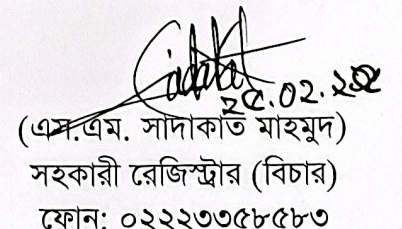 (এস.এম. সাদাকাত মাহমুদ)
সহকারী রেজিস্ট্রার (বিচার)
ফোন: ০২২২৩৩৫৮৫৮৩